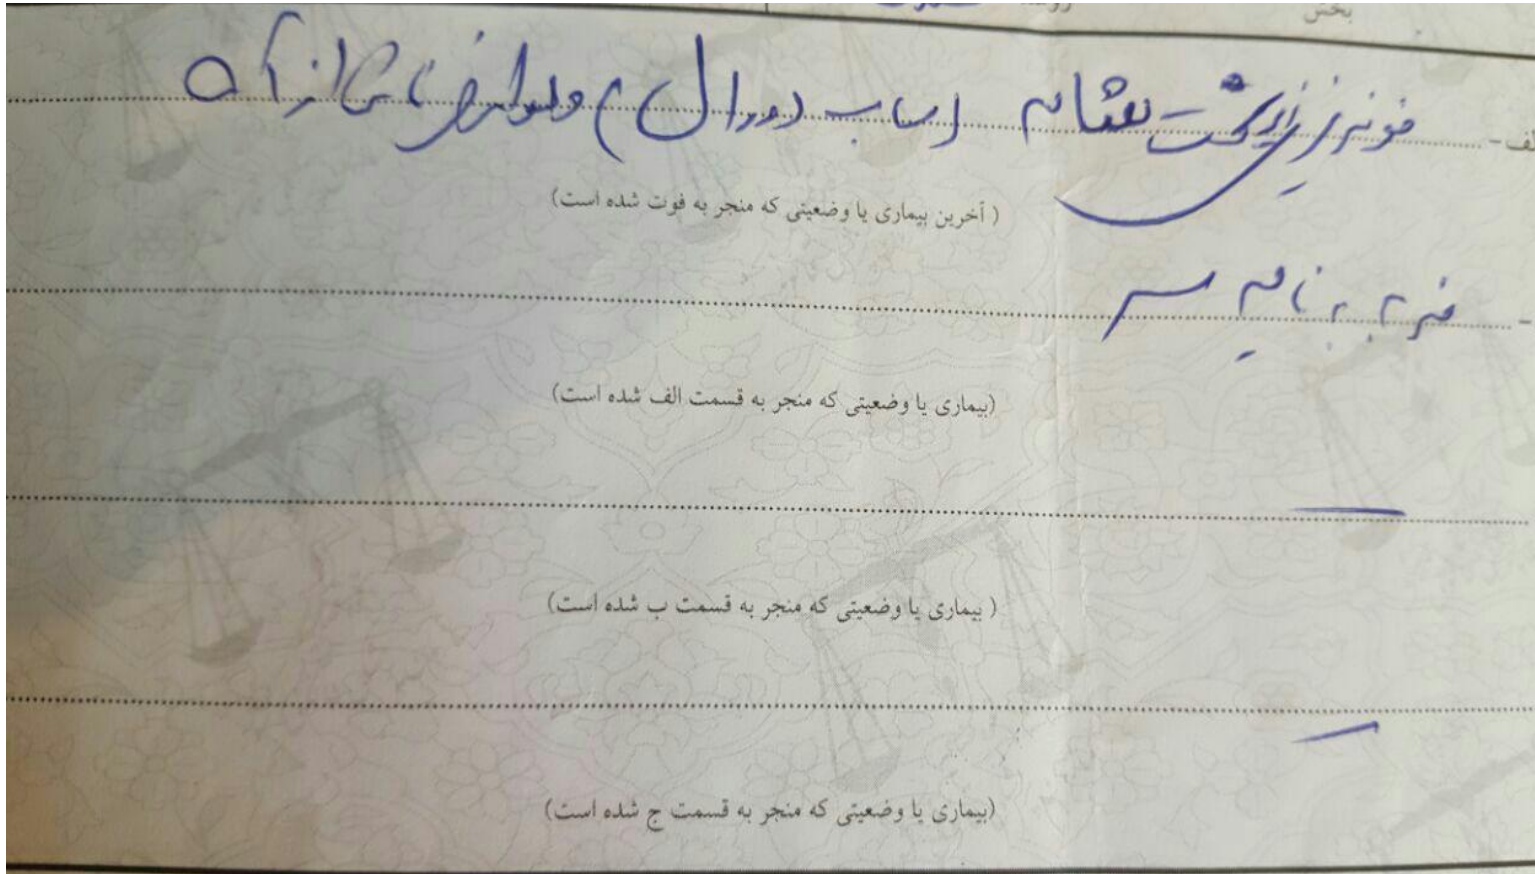 بخش
الف - خونریزی زیر سخت شامه (ساب دورال) و عوارض ناشی از آن
(آخرین بیماری یا وضعیتی که منجر به فوت شده است)
- ضربه به ناحیه سر
(بیماری یا وضعیتی که منجر به قسمت الف شده است)
(بیماری یا وضعیتی که منجر به قسمت ب شده است)
(بیماری یا وضعیتی که منجر به قسمت ج شده است)